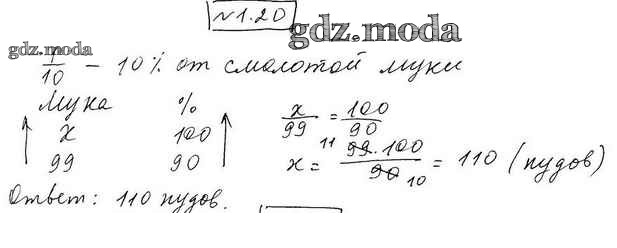 №1.20
gdz.moda
gdz.moda
1/10 – 10% от смолотой муки
Мука %
x 100
99 90
x/99 = 100/90
x = 99·100/90 = 110 (пудов)
11
10
Ответ: 110 пудов.